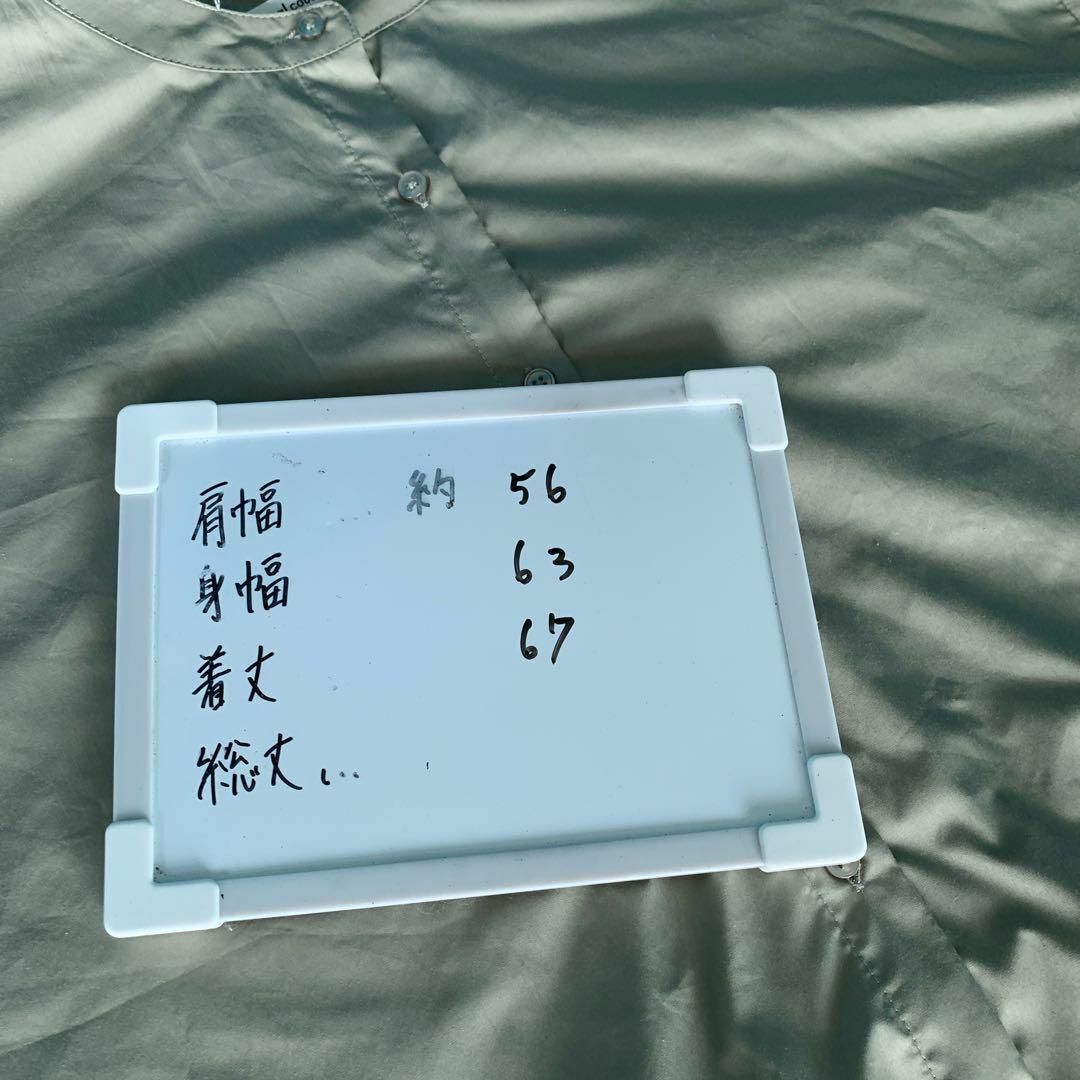 肩幅 約 56
身幅 63
着丈 67
総丈...